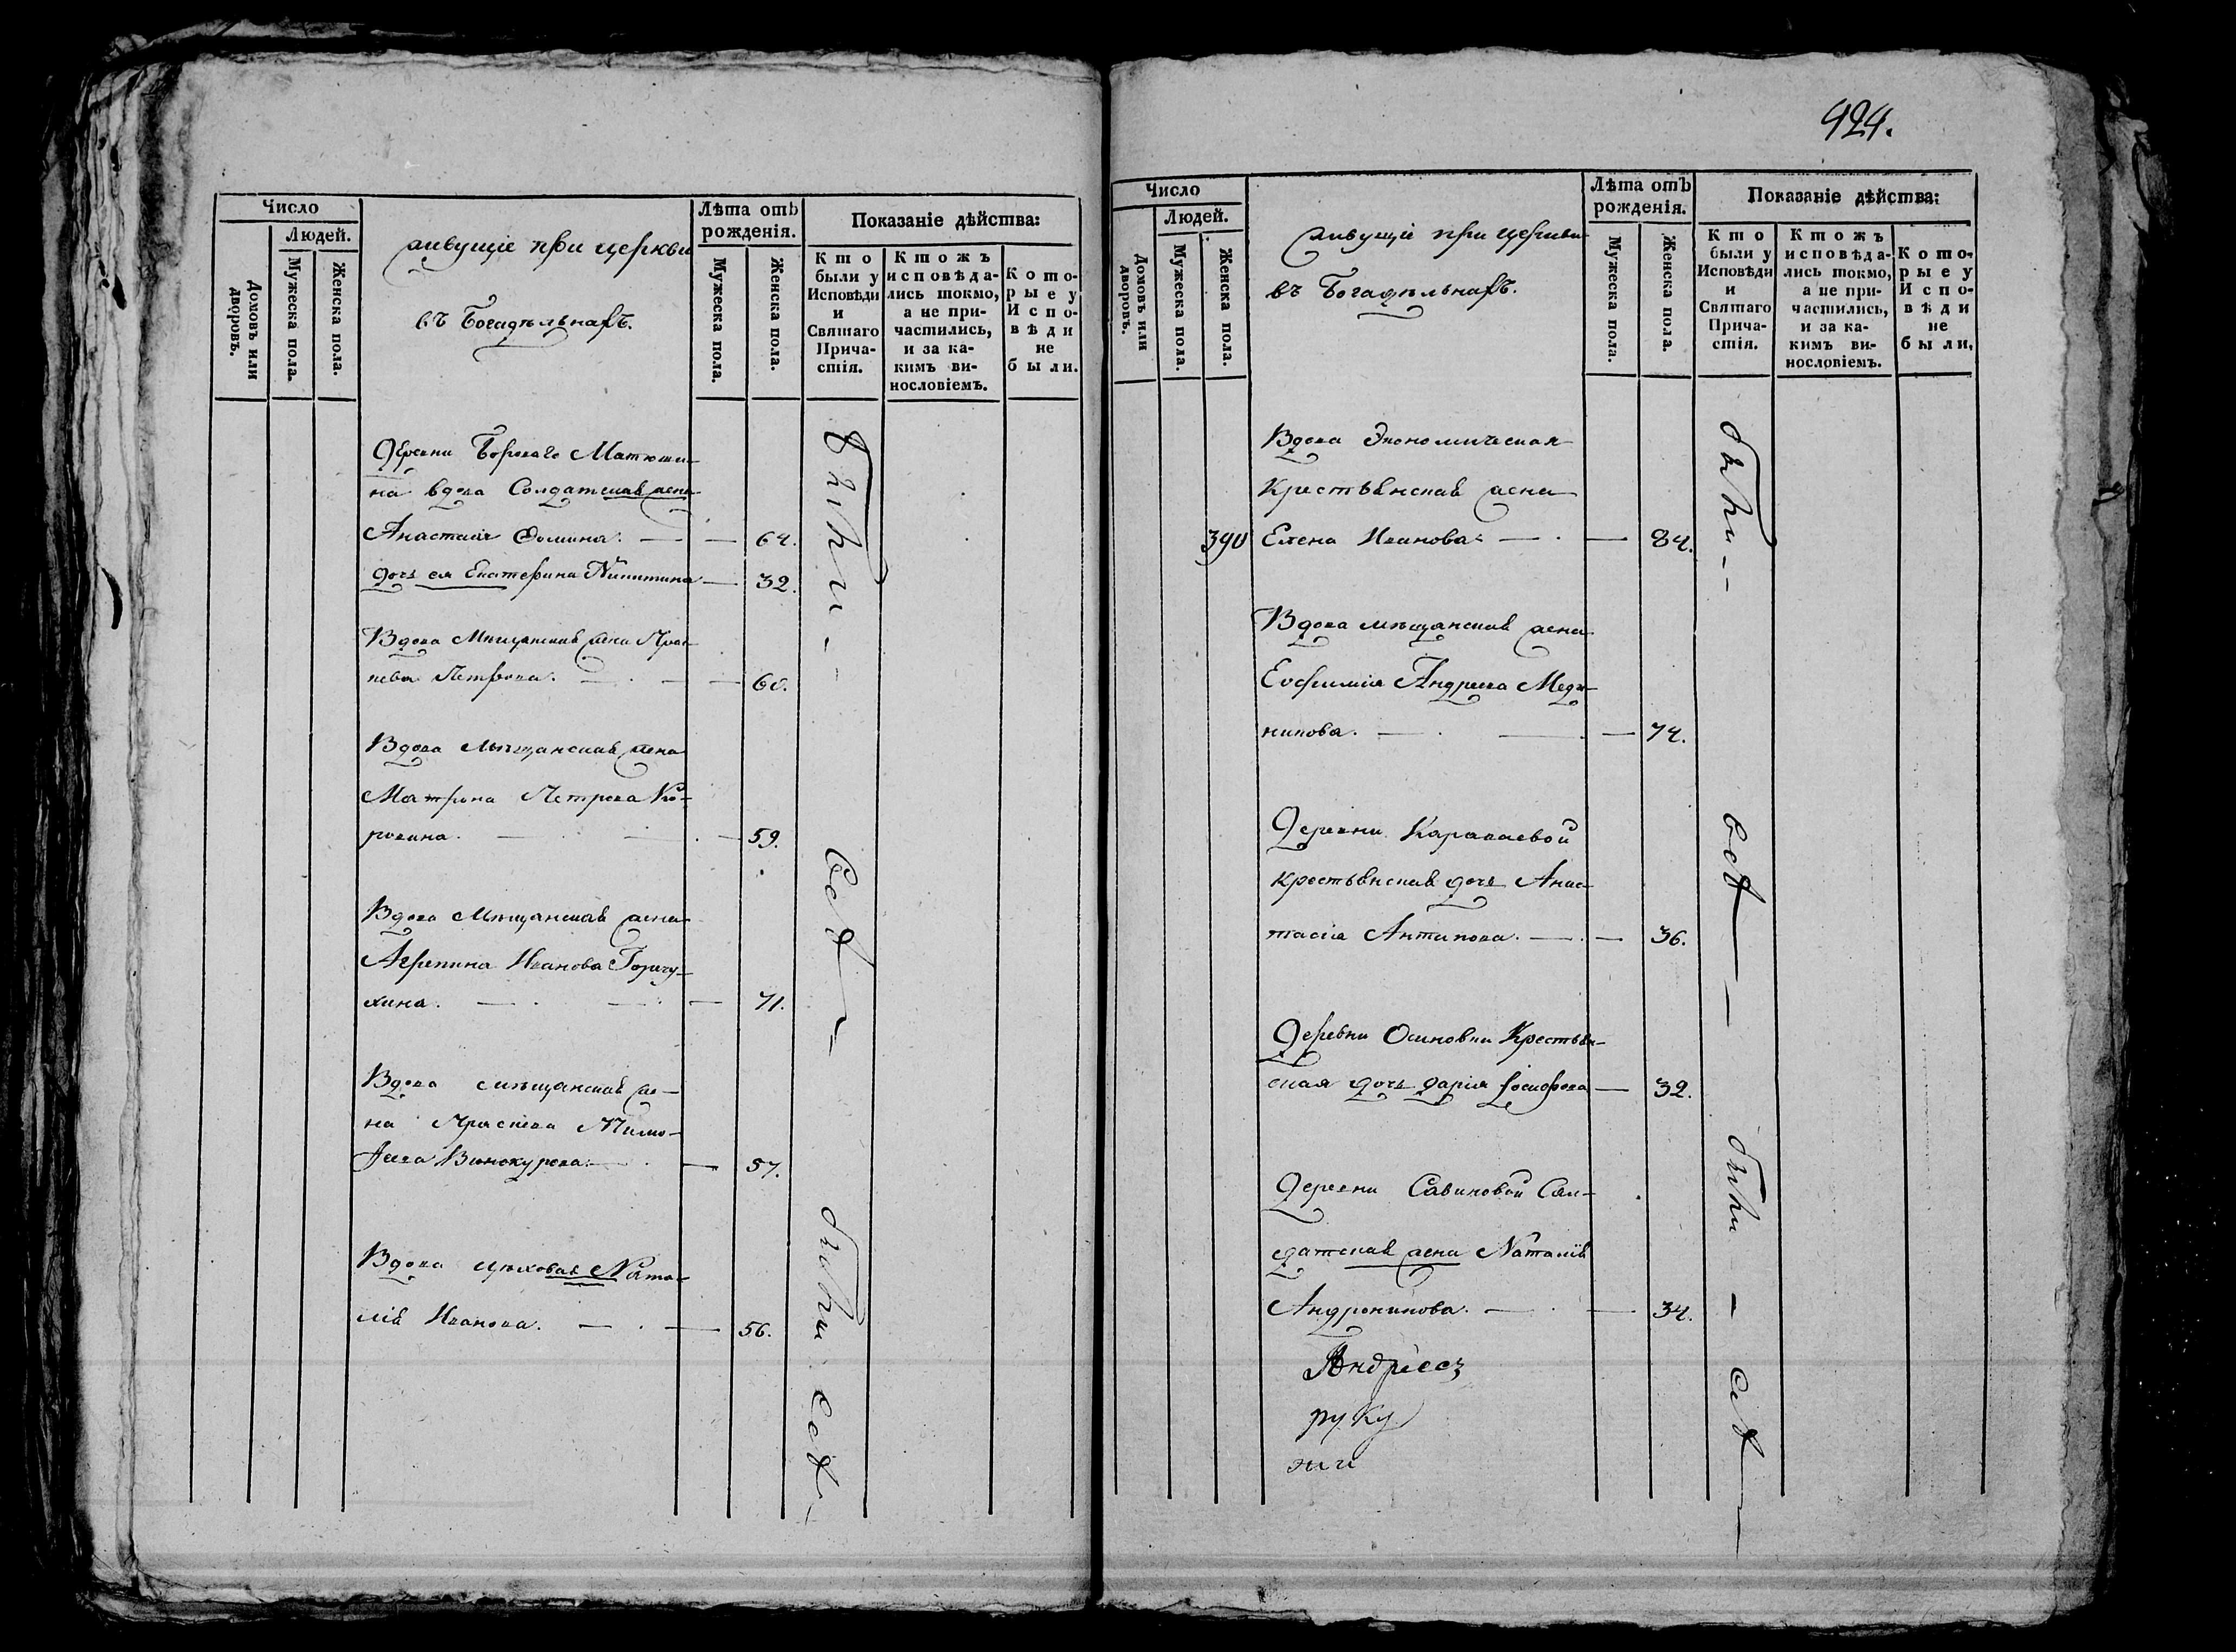 Число
Людей.
Домовъ или дворовъ.
Мужеска пола.
Женска пола.
живущіе при церкви
въ Богадѣльнахъ.
Лѣта отъ рожденія.
Мужеска пола.
Женска пола.
Показаніе дѣйства:
Кто были у Исповѣди и Святаго Прича-стія.
Ктожъ исповѣда-лись токмо, а не при-частились, и за ка-кимъ ви-нословіемъ.
Кото-рые у Испо-вѣди не были.
Деревни Бороваго Матюши-
на вдова Солдатская жена
Анастасія Фомина. — — 64.
дочь ея Екатерина Никитина — 32.
Вдова Мѣщанская жена Прас-
кева Петрова. — — 60.
Вдова Мѣщанская жена
Матрона Петрова Ко-
ровина. — — 59.
Вдова Мѣщанская жена
Агрепина Иванова Горчу-
хина. — — 71.
Вдова мѣщанская же-
на Праскева Тимо-
феева Винокурова. — 57.
Вдова цѣховая Ната-
лія Иванова. — — 56.
были
всѣ
были всѣ
424.
Число
Людей.
Домовъ или дворовъ.
Мужеска пола.
Женска пола.
живущіе при церкви
въ Богадѣльнахъ.
Лѣта отъ рожденія.
Мужеска пола.
Женска пола.
Показаніе дѣйства:
Кто были у Исповѣди и Святаго Прича-стія.
Ктожъ исповѣда-лись токмо, а не при-частились, и за ка-кимъ ви-нословіемъ.
Кото-рые у Испо-вѣди не были.
Вдова Экономическая
крестьянская жена
390 Елена Иванова. — — 84.
Вдова мѣщанская жена
Евфимия Андреева Меди-
никова. — — 74.
Деревни Караваевой
крестьянская дочь Анас-
тасія Антипова. — — 36.
Деревни Осиновки Крестьян-
ская дочь Дарія Іосифова — 32.
Деревни Савиновой Сол-
датская жена Наталія
Андроникова. — — 34.
Андреевъ
руку
жи
были
всѣ
были — всѣ